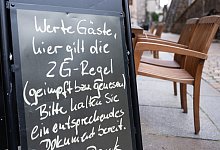 Werte Gäste,
hier gilt die
2G-Regel
(geimpft bzw. genesen)
Bitte halten Sie
ein entsprechendes
Dokument bereit.
Danke